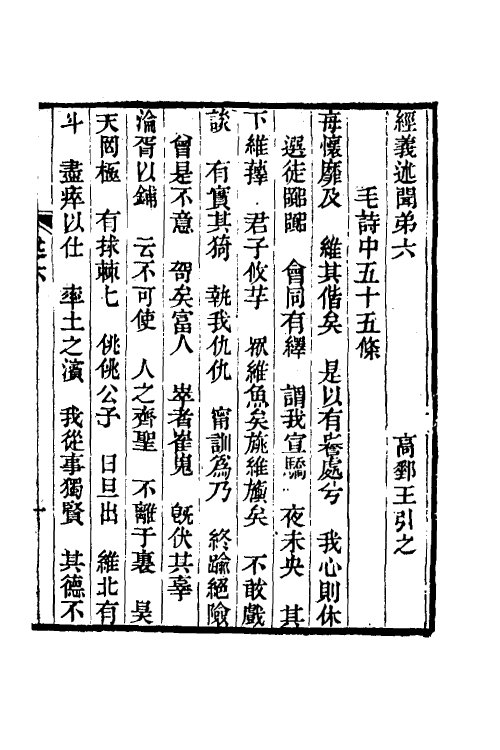 經義述聞弟六　高郵王引之
毛詩中五十五條
每懷靡及　維其偕矣　是以有譽處兮　我心則休
選徒囂囂　會同有繹　謂我宣驕　夜未央　其
下維蘀　君子攸芋　眾維魚矣旐維旟矣　不敢戲
談　有實其猗　執我仇仇　甯訓爲乃　終踰絕險
曾是不意　哿矣富人　崒者崔嵬　旣伏其辜
淪胥以鋪　云不可使　人之齊聖　不離于裏　昊
天罔極　有捄棘匕　佻佻公子　日旦出　維北有
斗　盡瘁以仕　率土之濱　我從事獨賢　其德不